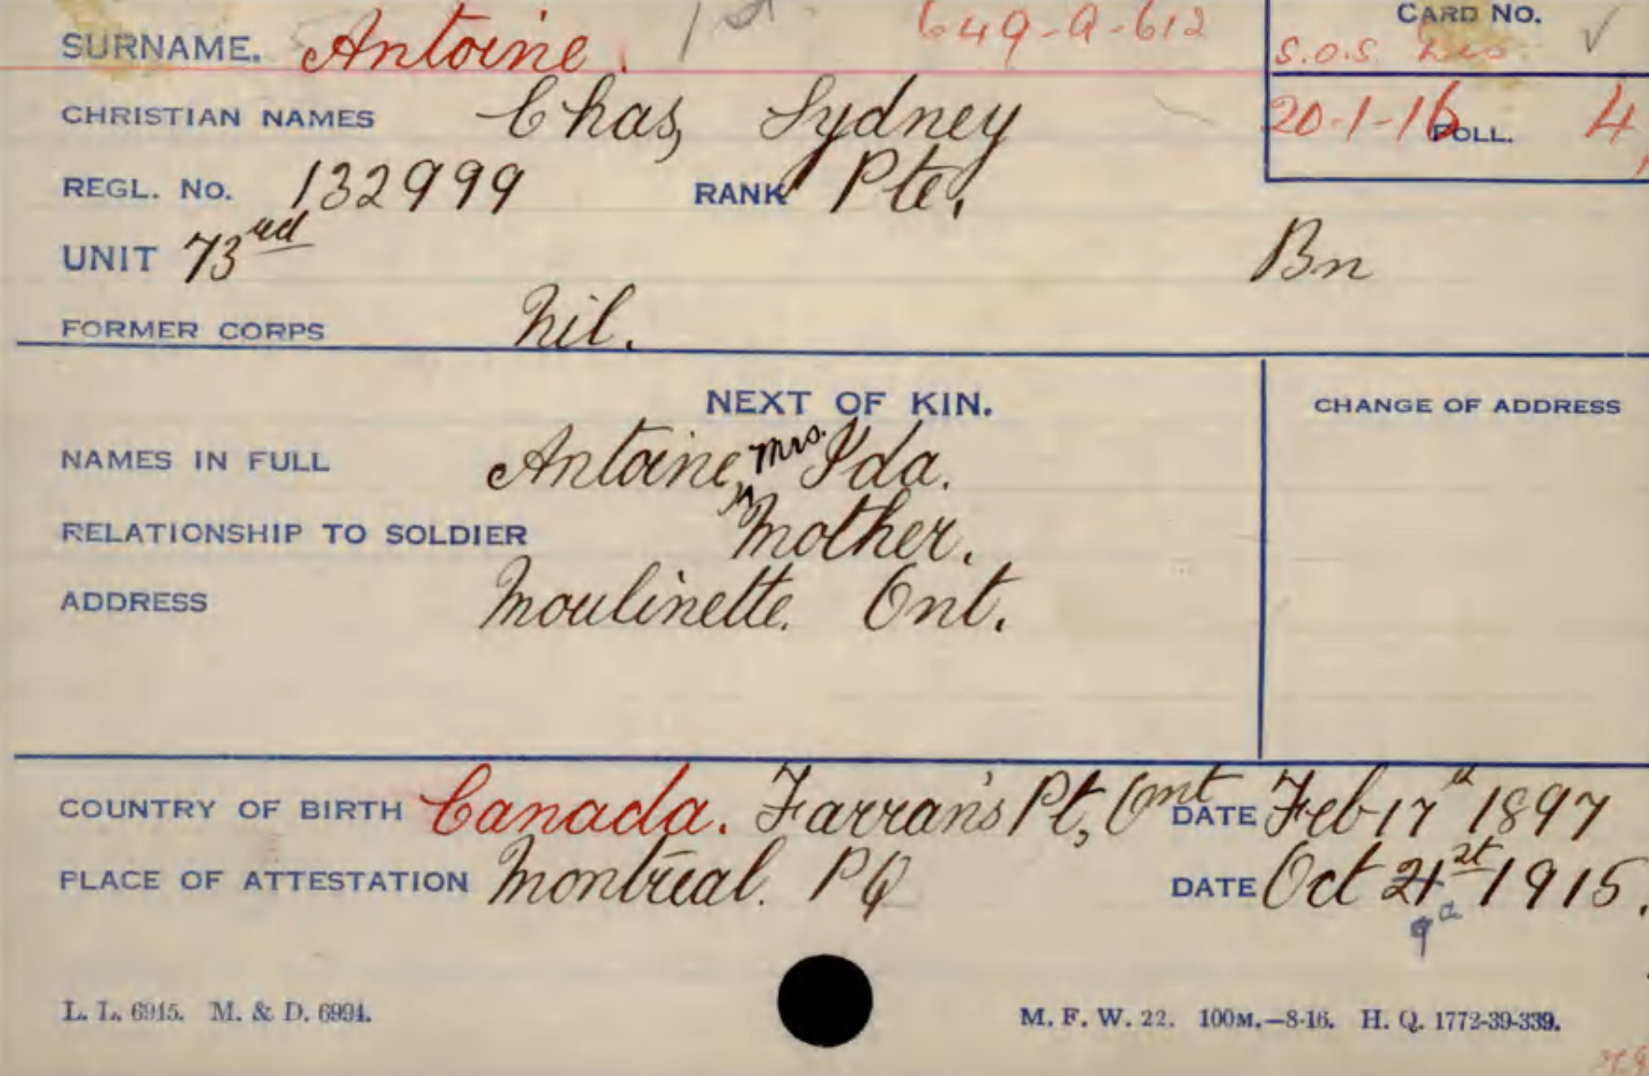 CARD NO.
SURNAME. Antoine. 649-A-612
S.O.S. Des.
CHRISTIAN NAMES Chas, Sydney
20-1-16 FOLL. 4
REGL. No. 132999 RANK Pte.
UNIT 73rd Bn
FORMER CORPS Nil.
NEXT OF KIN. CHANGE OF ADDRESS
NAMES IN FULL Antoine, Mrs. Ida.
RELATIONSHIP TO SOLDIER Mother.
ADDRESS Moulinette. Ont.
COUNTRY OF BIRTH Canada. Farran's Pt, Ont DATE Feb 17th 1897
PLACE OF ATTESTATION Montreal. PQ DATE Oct 21st 1915.
L. L. 6915. M. & D. 6994. M. F. W. 22. 100M.—8-16. H. Q. 1772-39-339.